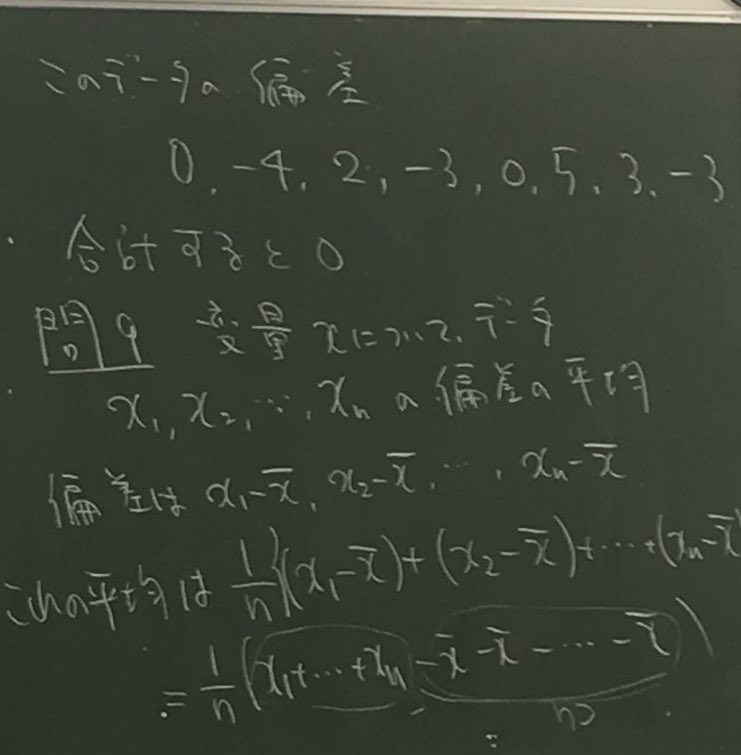 このデータの偏差
0, -4, 2, -3, 0, 5, 3, -3
合計すると0
問9 変量xについて、データ
x₁, x₂, …, xₙ の偏差の平均
偏差は x₁-x̄, x₂-x̄, …, xₙ-x̄
これの平均は 1/n{(x₁-x̄)+(x₂-x̄)+…+(xₙ-x̄)
= 1/n(x₁+…+xₙ-x̄-x̄-…-x̄)